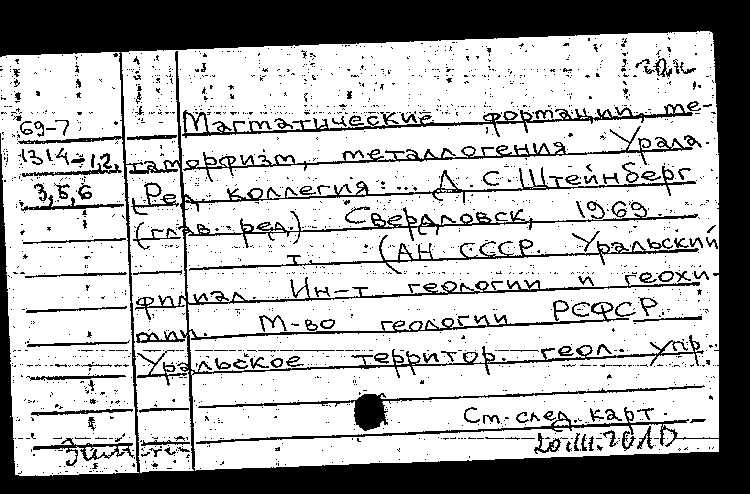 69-7 Магматические формации, ме-
1314-1,2, таморфизм, металлогения Урала
3,5,6 (Ред. коллегия: ... Д. С. Штейнберг
(глав. ред.) Свердловск, 1969
т. (АН СССР. Уральский
филиал. Ин-т геологии и геохи-
мии. М-во геологии РСФСР.
Уральское территор. геол. упр.
См. след. карт.
20.III.2010